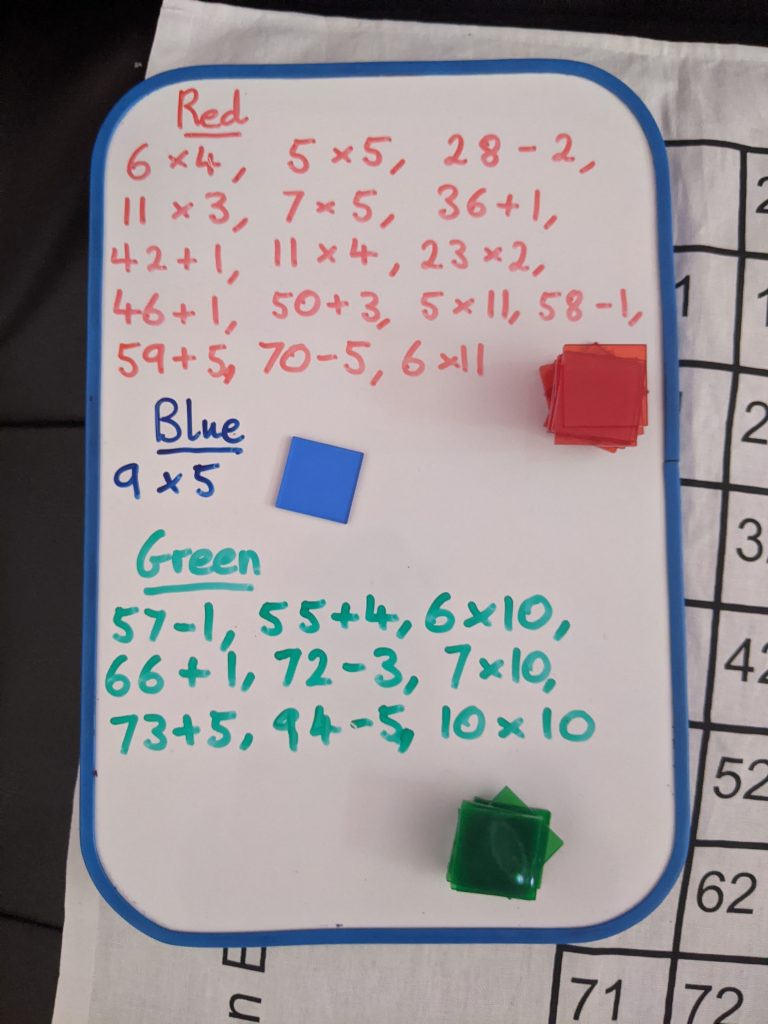 Red
6 × 4, 5 × 5, 28 - 2,
11 × 3, 7 × 5, 36 + 1,
42 + 1, 11 × 4, 23 × 2,
46 + 1, 50 + 3, 5 × 11, 58 - 1,
59 + 5, 70 - 5, 6 × 11
Blue
9 × 5
Green
57 - 1, 55 + 4, 6 × 10,
66 + 1, 72 - 3, 7 × 10,
73 + 5, 94 - 5, 10 × 10
42
52
62
71 72